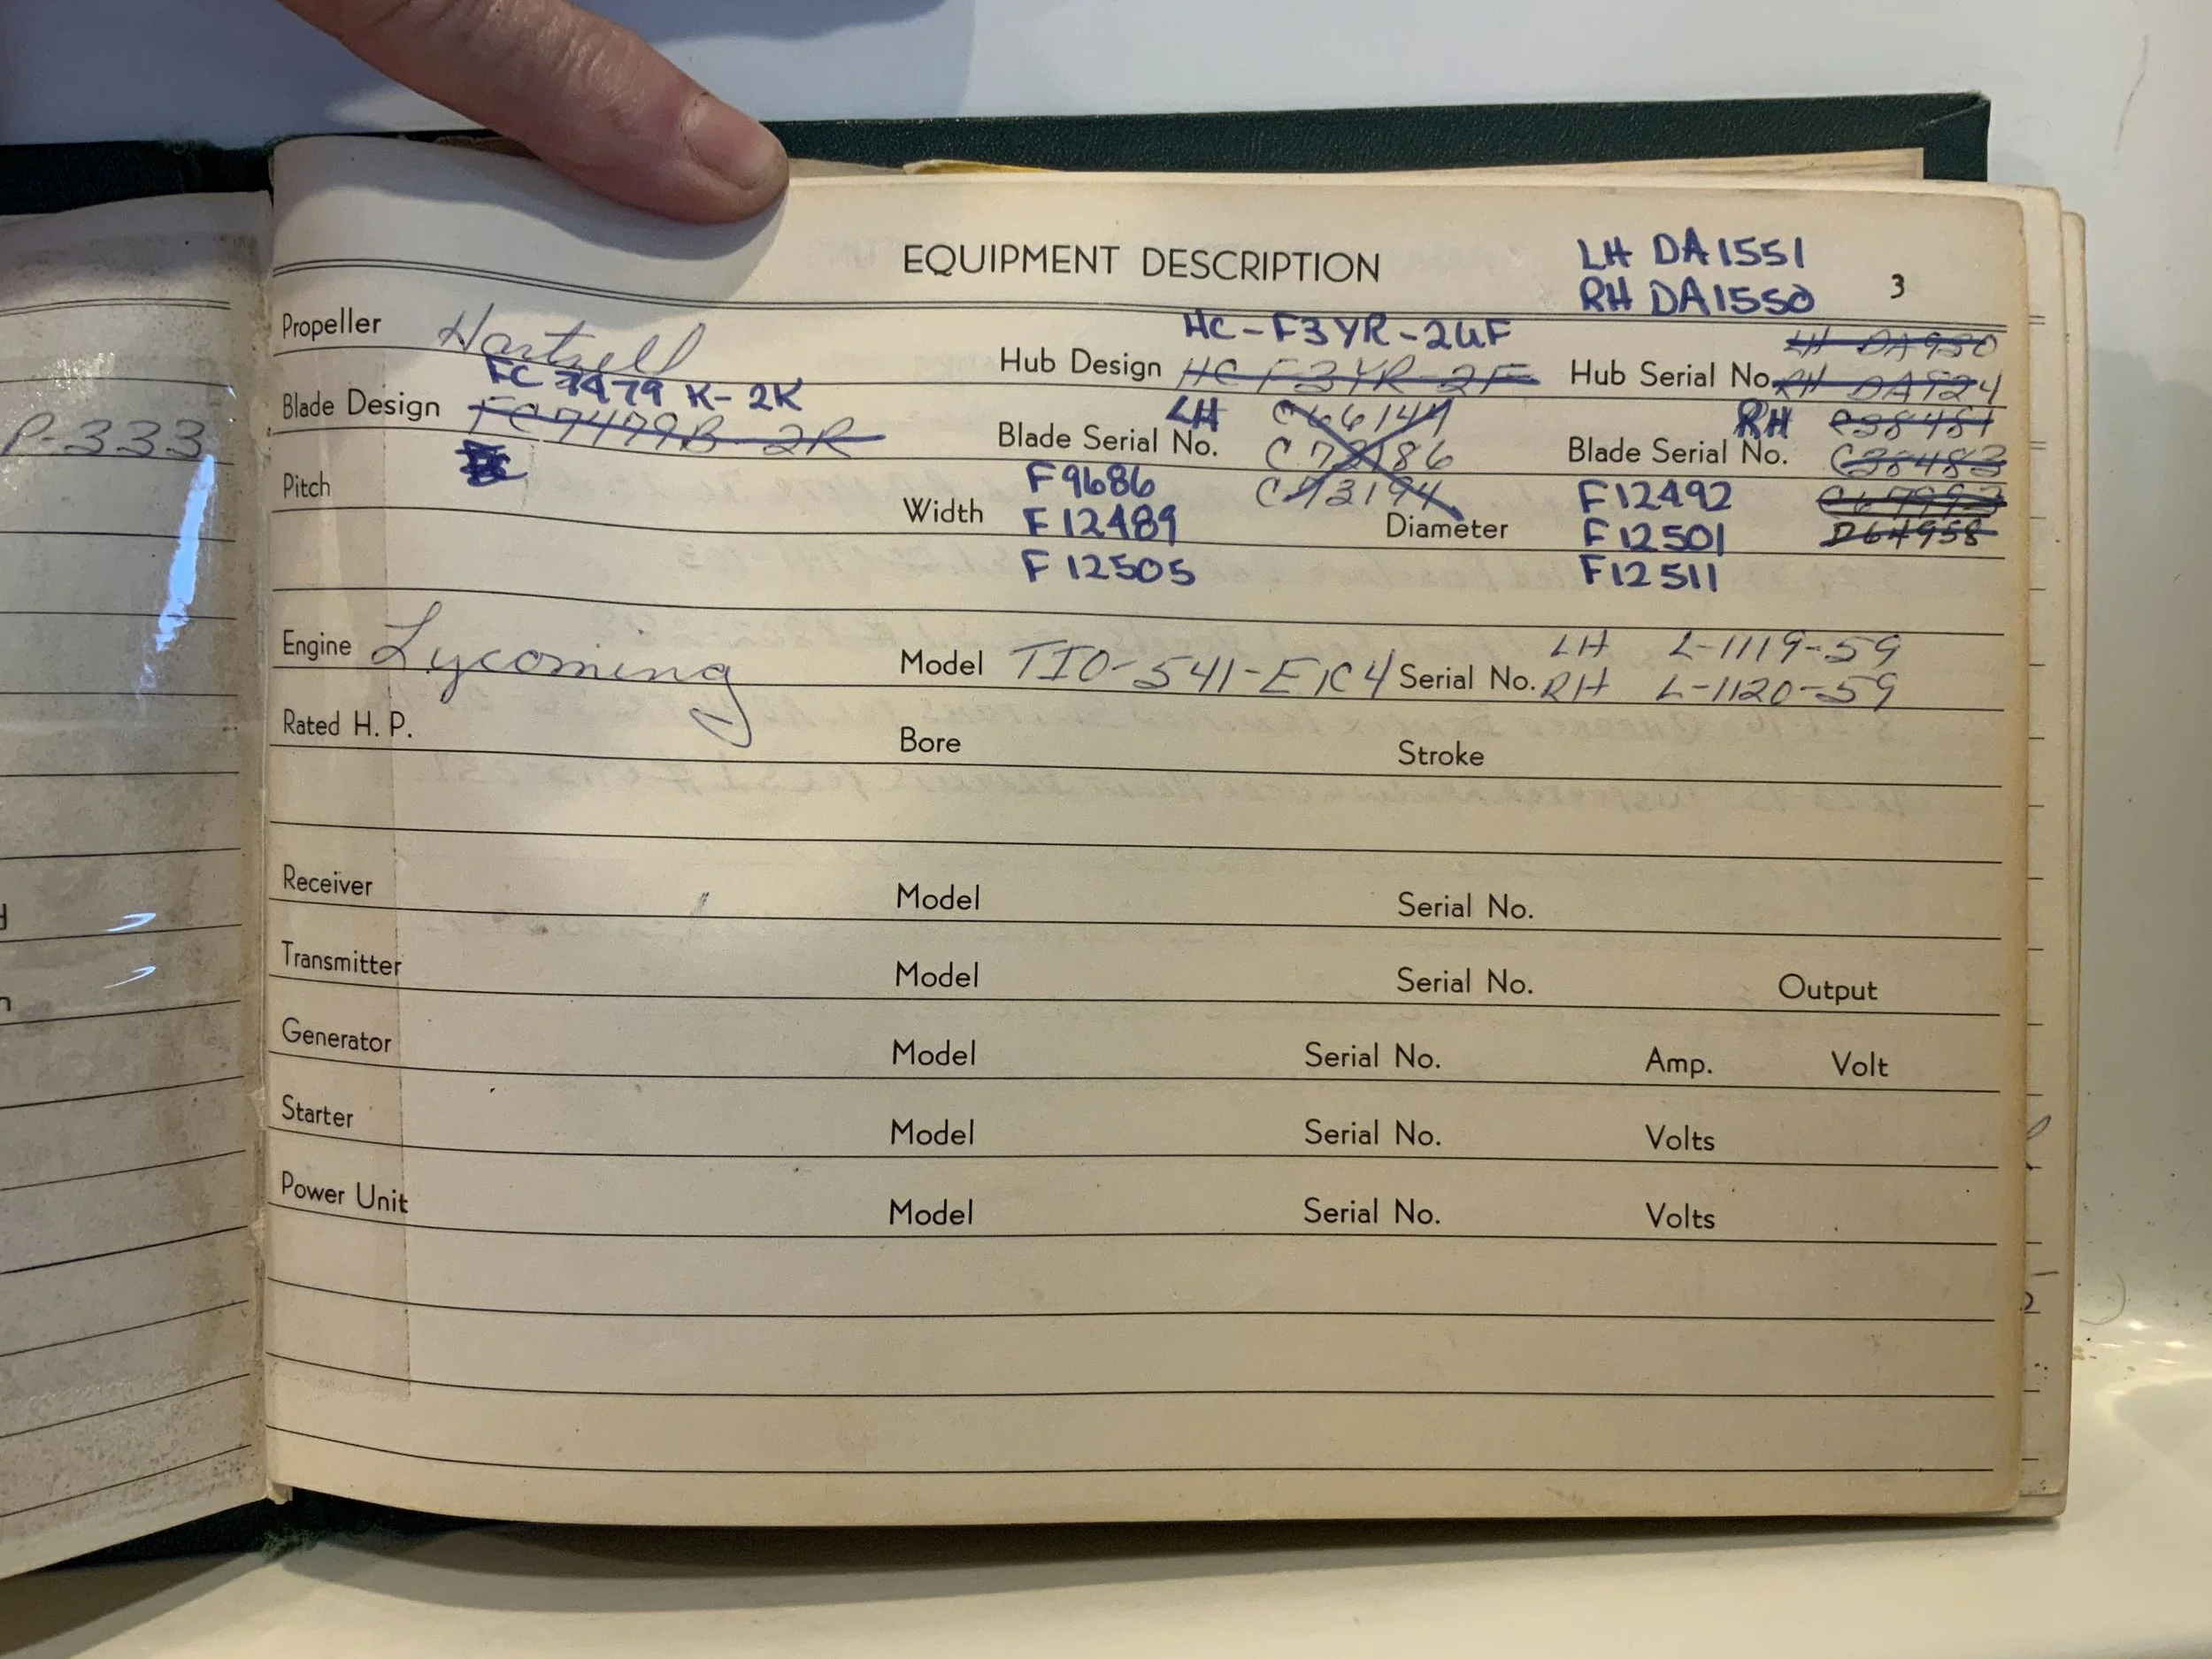 EQUIPMENT DESCRIPTION
LH DA1551
RH DA1550
3
Propeller Hartzell
HC-F3YR-2UF
Hub Design HC F3YR-2F
Hub Serial No. LH DA930
RH DA924
FC 7479 K-2K
Blade Design FC7479B-2R
LH
Blade Serial No. C66144
C73186
C73194
RH
Blade Serial No. C38481
C38483
C67993
D64958
Pitch
Width
F9686
F12489
F12505
Diameter
F12492
F12501
F12511
P-333
Engine Lycoming
Model TIO-541-E1C4
Serial No. LH L-1119-59
RH L-1120-59
Rated H. P. Bore Stroke
Receiver Model Serial No.
Transmitter Model Serial No. Output
Generator Model Serial No. Amp. Volt
Starter Model Serial No. Volts
Power Unit Model Serial No. Volts